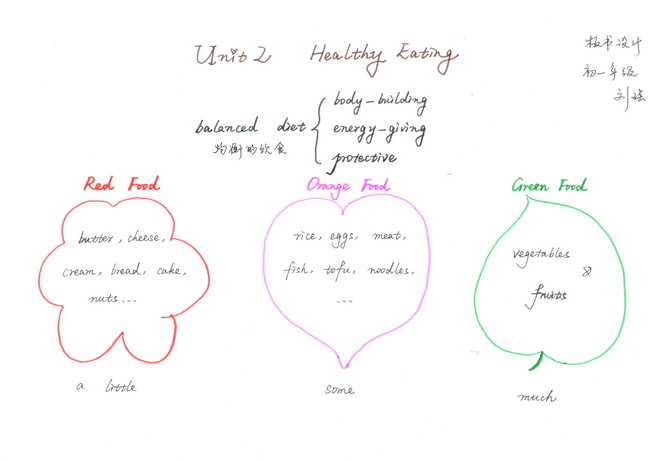 Unit 2 Healthy Eating
板书设计
初一年级
刘瑶
balanced diet
均衡的饮食
body-building
energy-giving
protective
Red Food
butter, cheese,
cream, bread, cake,
nuts ...
a little
Orange Food
rice, eggs, meat,
fish, tofu, noodles,
...
some
Green Food
vegetables
&
fruits
much